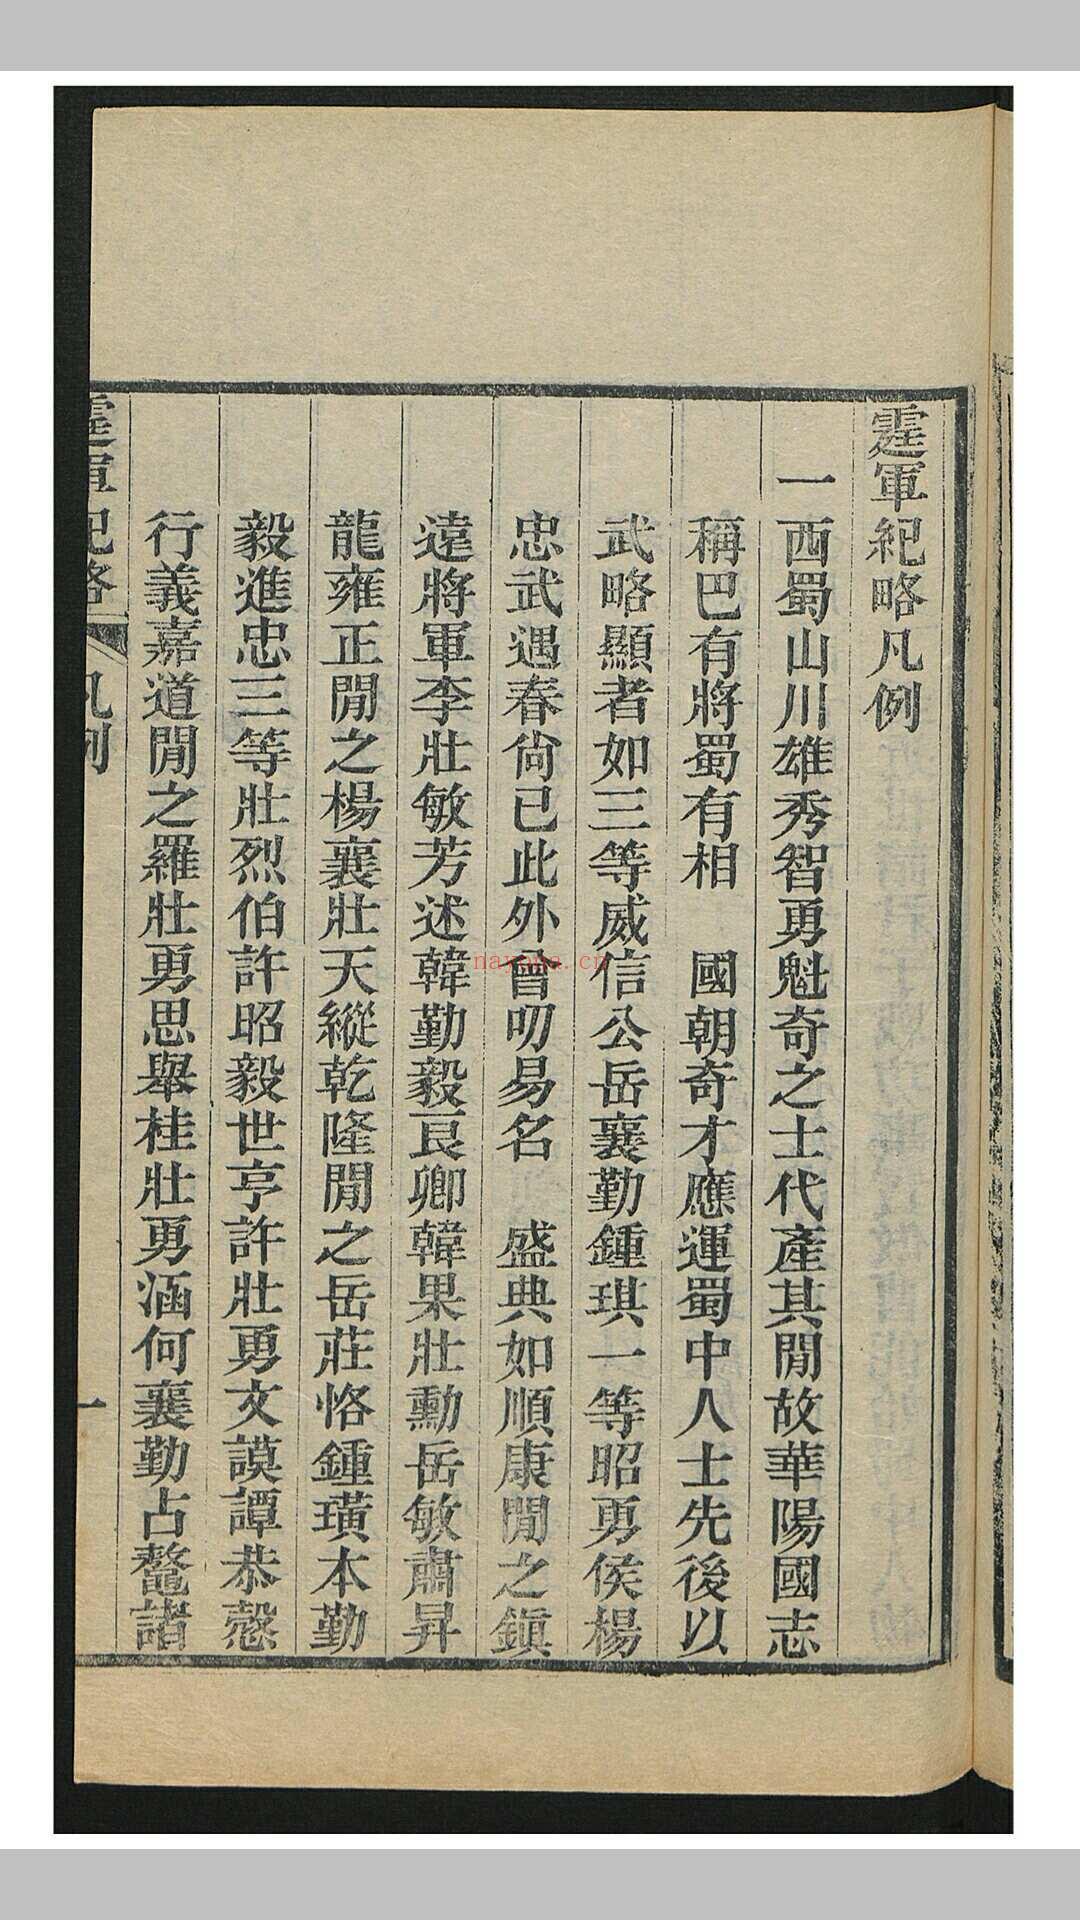 霆軍紀略凡例
一西蜀山川雄秀智勇魁奇之士代產其閒故華陽國志
稱巴有將蜀有相　國朝奇才應運蜀中人士先後以
武略顯者如三等威信公岳襄勤鍾琪一等昭勇侯楊
忠武遇春尙已此外曾叨易名　盛典如順康閒之鎭
遠將軍李壯敏芳述韓勤毅良卿韓果壯勳岳敏肅昇
龍雍正閒之楊襄壯天縱乾隆閒之岳莊恪鍾璜本勤
毅進忠三等壯烈伯許昭毅世亨許壯勇文謨譚恭慤
行義嘉道閒之羅壯勇思舉桂壯勇涵何襄勤占鼇諸
霆軍紀略　凡例　一
nayona.cn